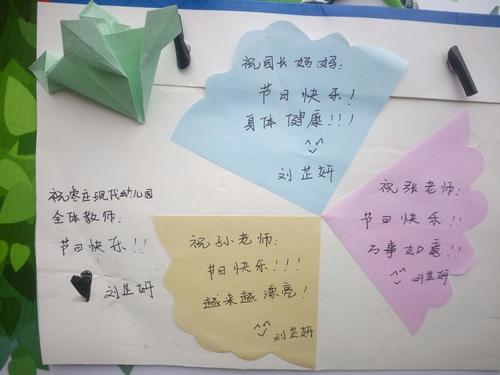 祝园长妈妈:
节日快乐!
身体健康!!!
刘芷妍
祝枣庄现代幼儿园
全体教师:
节日快乐!!
刘芷妍
祝孙老师:
节日快乐!!!
越来越漂亮!
刘芷妍
祝张老师:
节日快乐!!
万事如意!!!
刘芷妍